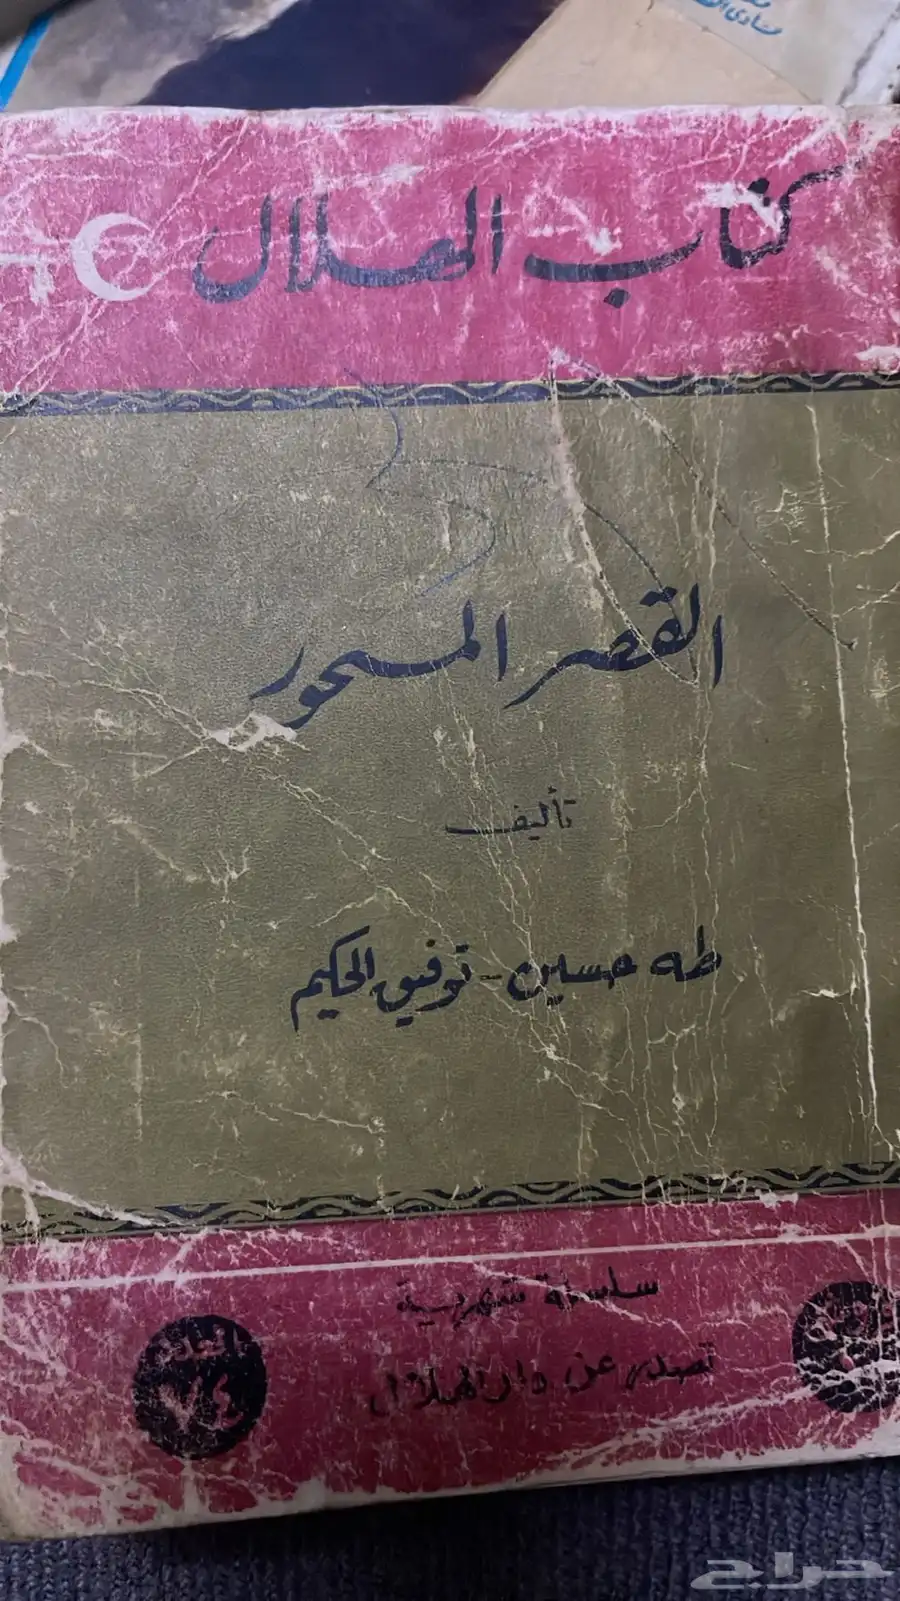 كتاب الهلال
القصر المسحور
تأليف
طه حسين - توفيق الحكيم
سلسلة شهرية
تصدر عن دار الهلال
حراج